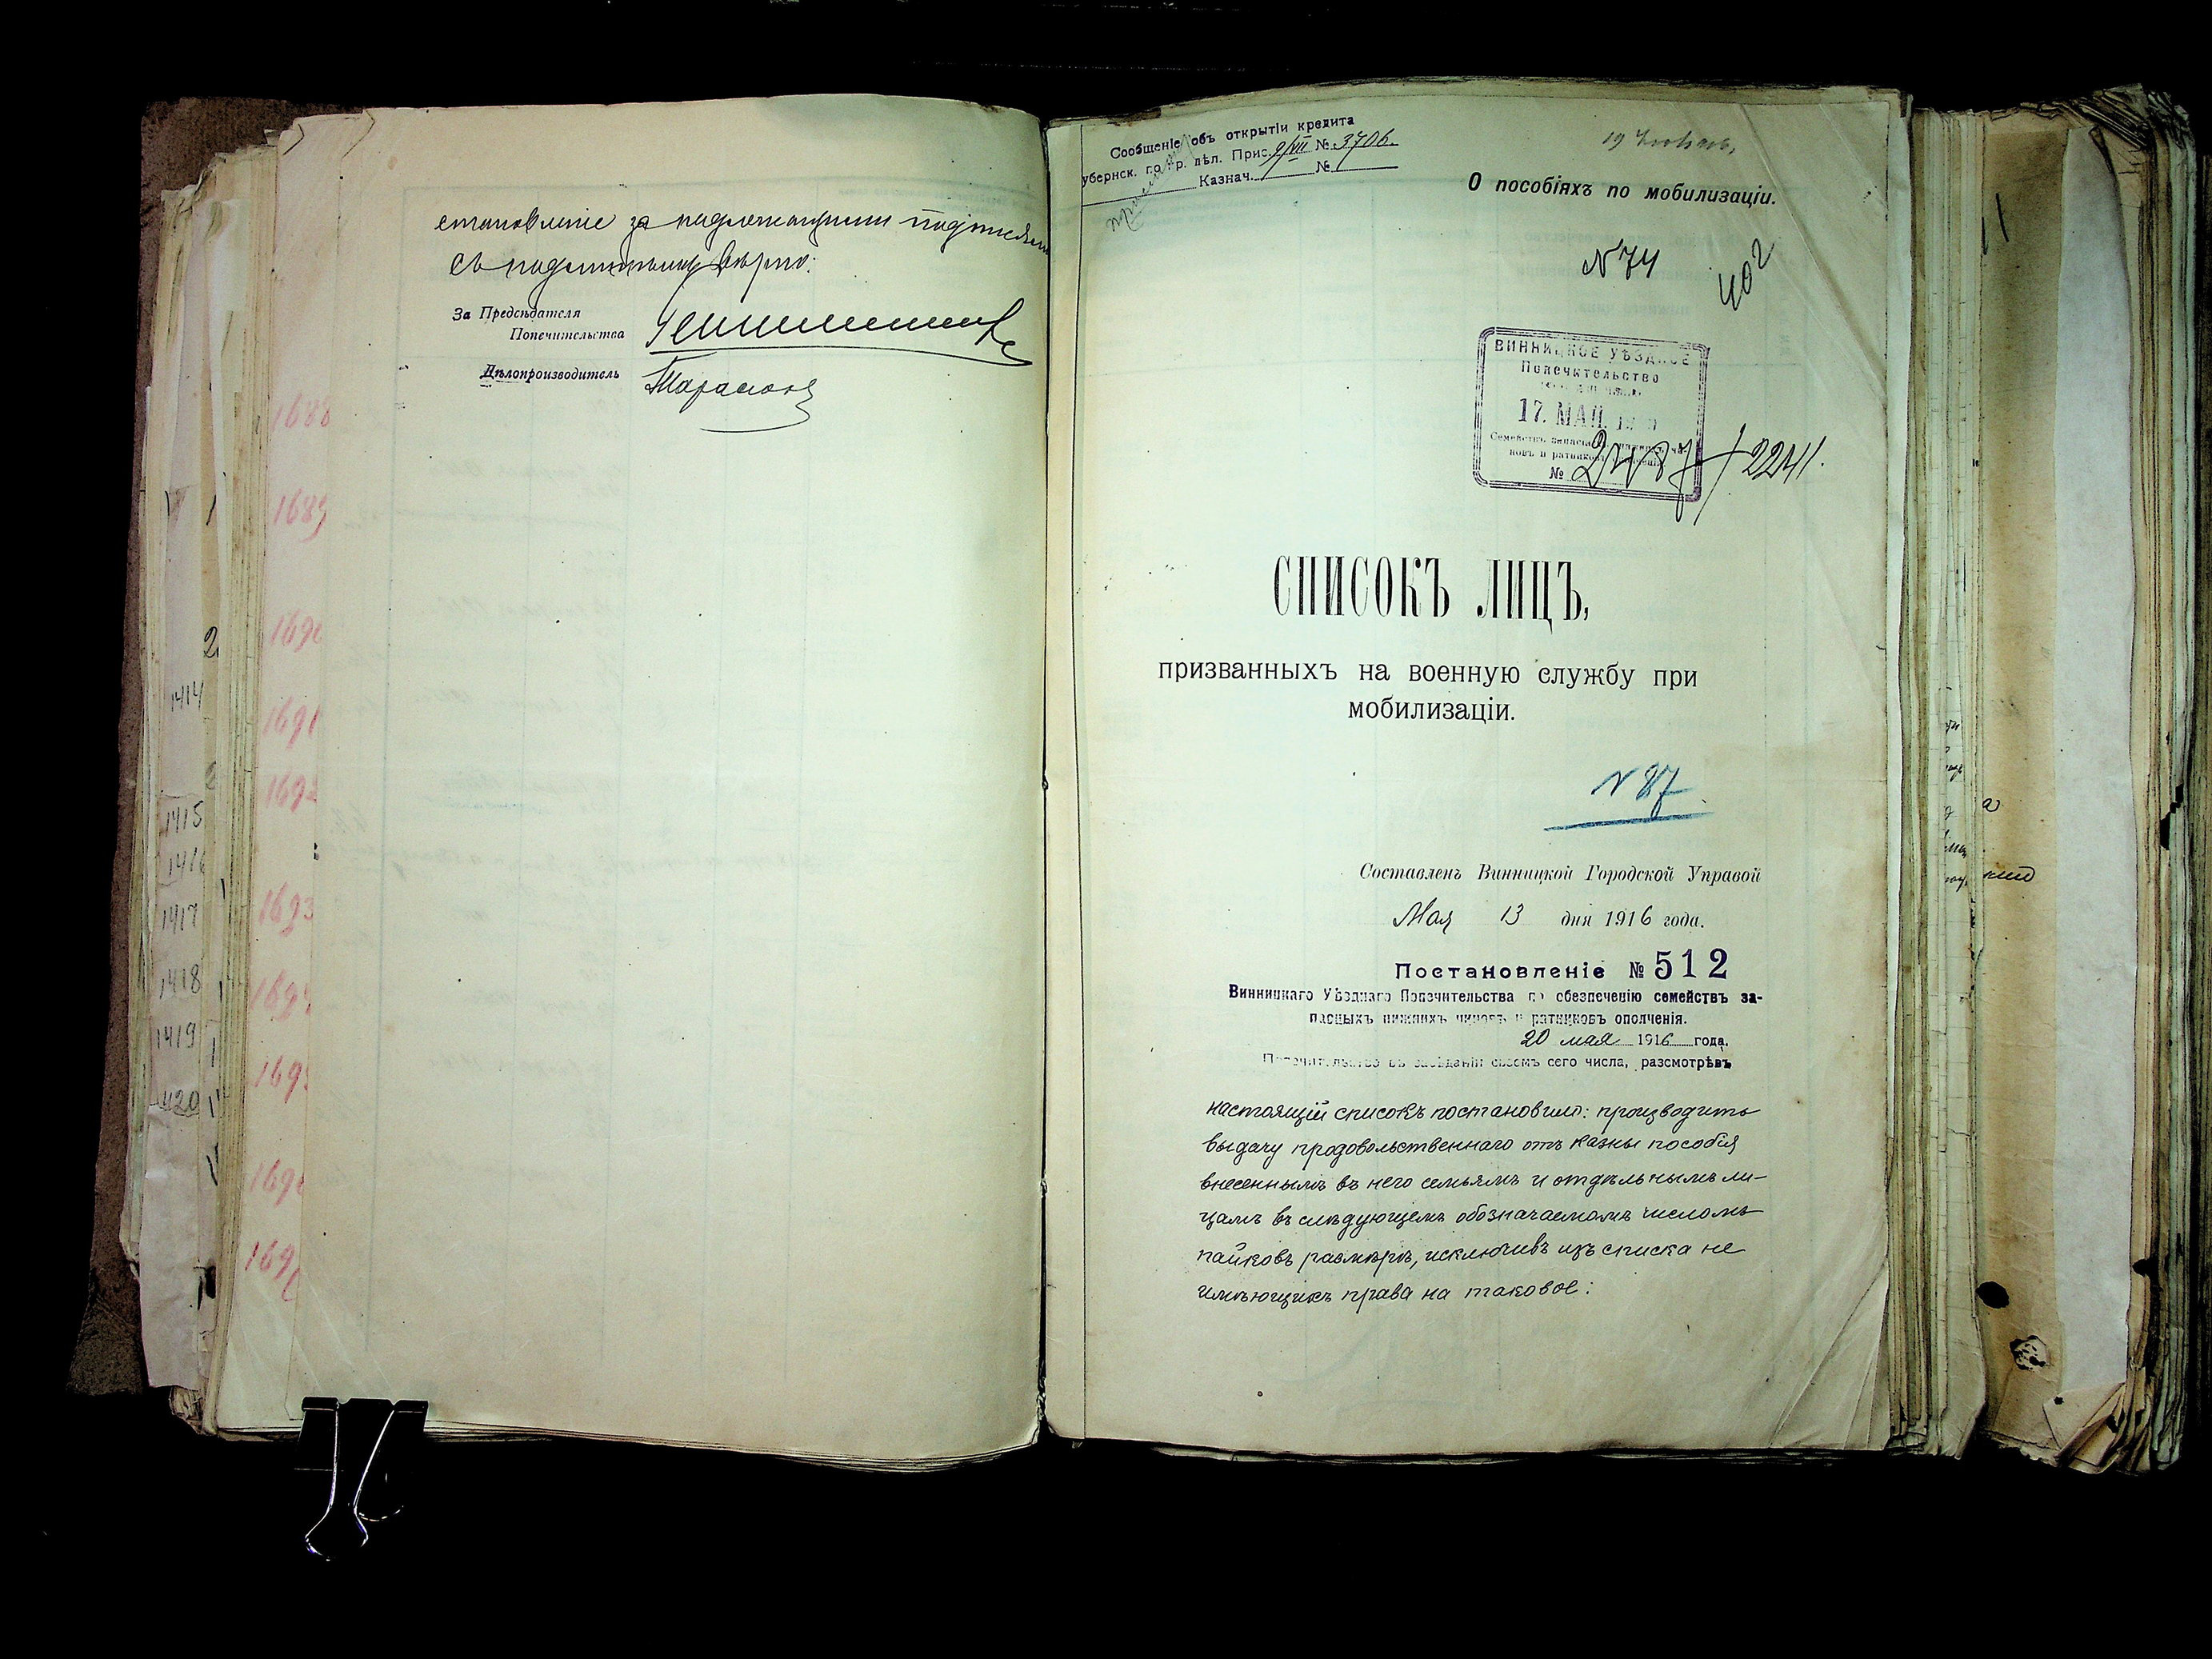 становленіе за надлежащими подписями
Съ подлиннымъ вѣрно:
За Предсѣдателя
Попечительства
Дѣлопроизводитель
Тарасюкъ
1688
1689
1691
1693
1414
1415
1416
1417
1418
1419
1420
Сообщеніе объ открытіи кредита
убернск. го р. дѣл. Прис. 9/VII № 3706.
Казнач. №
О пособіяхъ по мобилизаціи.
N 74
402
ВИННИЦКОЕ УѢЗДНОЕ
Попечительство
17. МАЯ.
№
2241.
СПИСОКЪ ЛИЦЪ,
призванныхъ на военную службу при
мобилизаціи.
N 87
Составленъ Винницкой Городской Управой
Мая 13 дня 1916 года.
Постановленіе № 512
Винницкаго Уѣзднаго Попечительства по обезпеченію семействъ за-
пасныхъ нижнихъ чиновъ и ратниковъ ополченія.
20 мая 1916 года.
Попечительство въ засѣданіи своемъ сего числа, разсмотрѣвъ
настоящій списокъ постановило: производить
выдачу продовольственнаго отъ казны пособія
внесеннымъ въ него семьямъ и отдѣльнымъ ли-
цамъ въ слѣдующемъ обозначаемомъ числомъ
пайковъ размѣрѣ, исключивъ изъ списка не
имѣющихъ права на таковое: